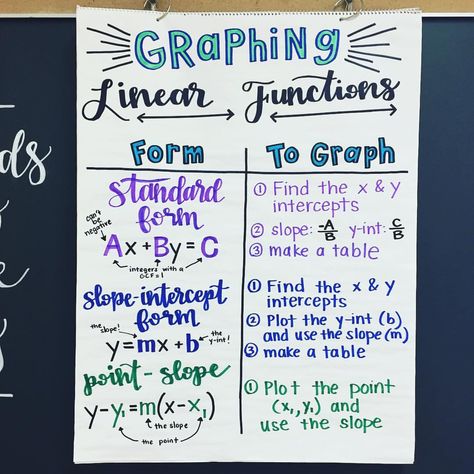 GRaPHiNG
Linear Functions
Form
To Graph
standard
form
can't be negative
Ax + By = C
integers with a
GCF=1
① Find the x & y
intercepts
② slope: -A/B y-int: C/B
③ make a table
slope-intercept
form
the slope!
the y-int!
y = mx + b
① Find the x & y
intercepts
② Plot the y-int (b)
and use the slope (m)
③ make a table
point-slope
y-y₁=m(x-x₁)
the slope
the point
① Plot the point
(x₁,y₁) and
use the slope
ds